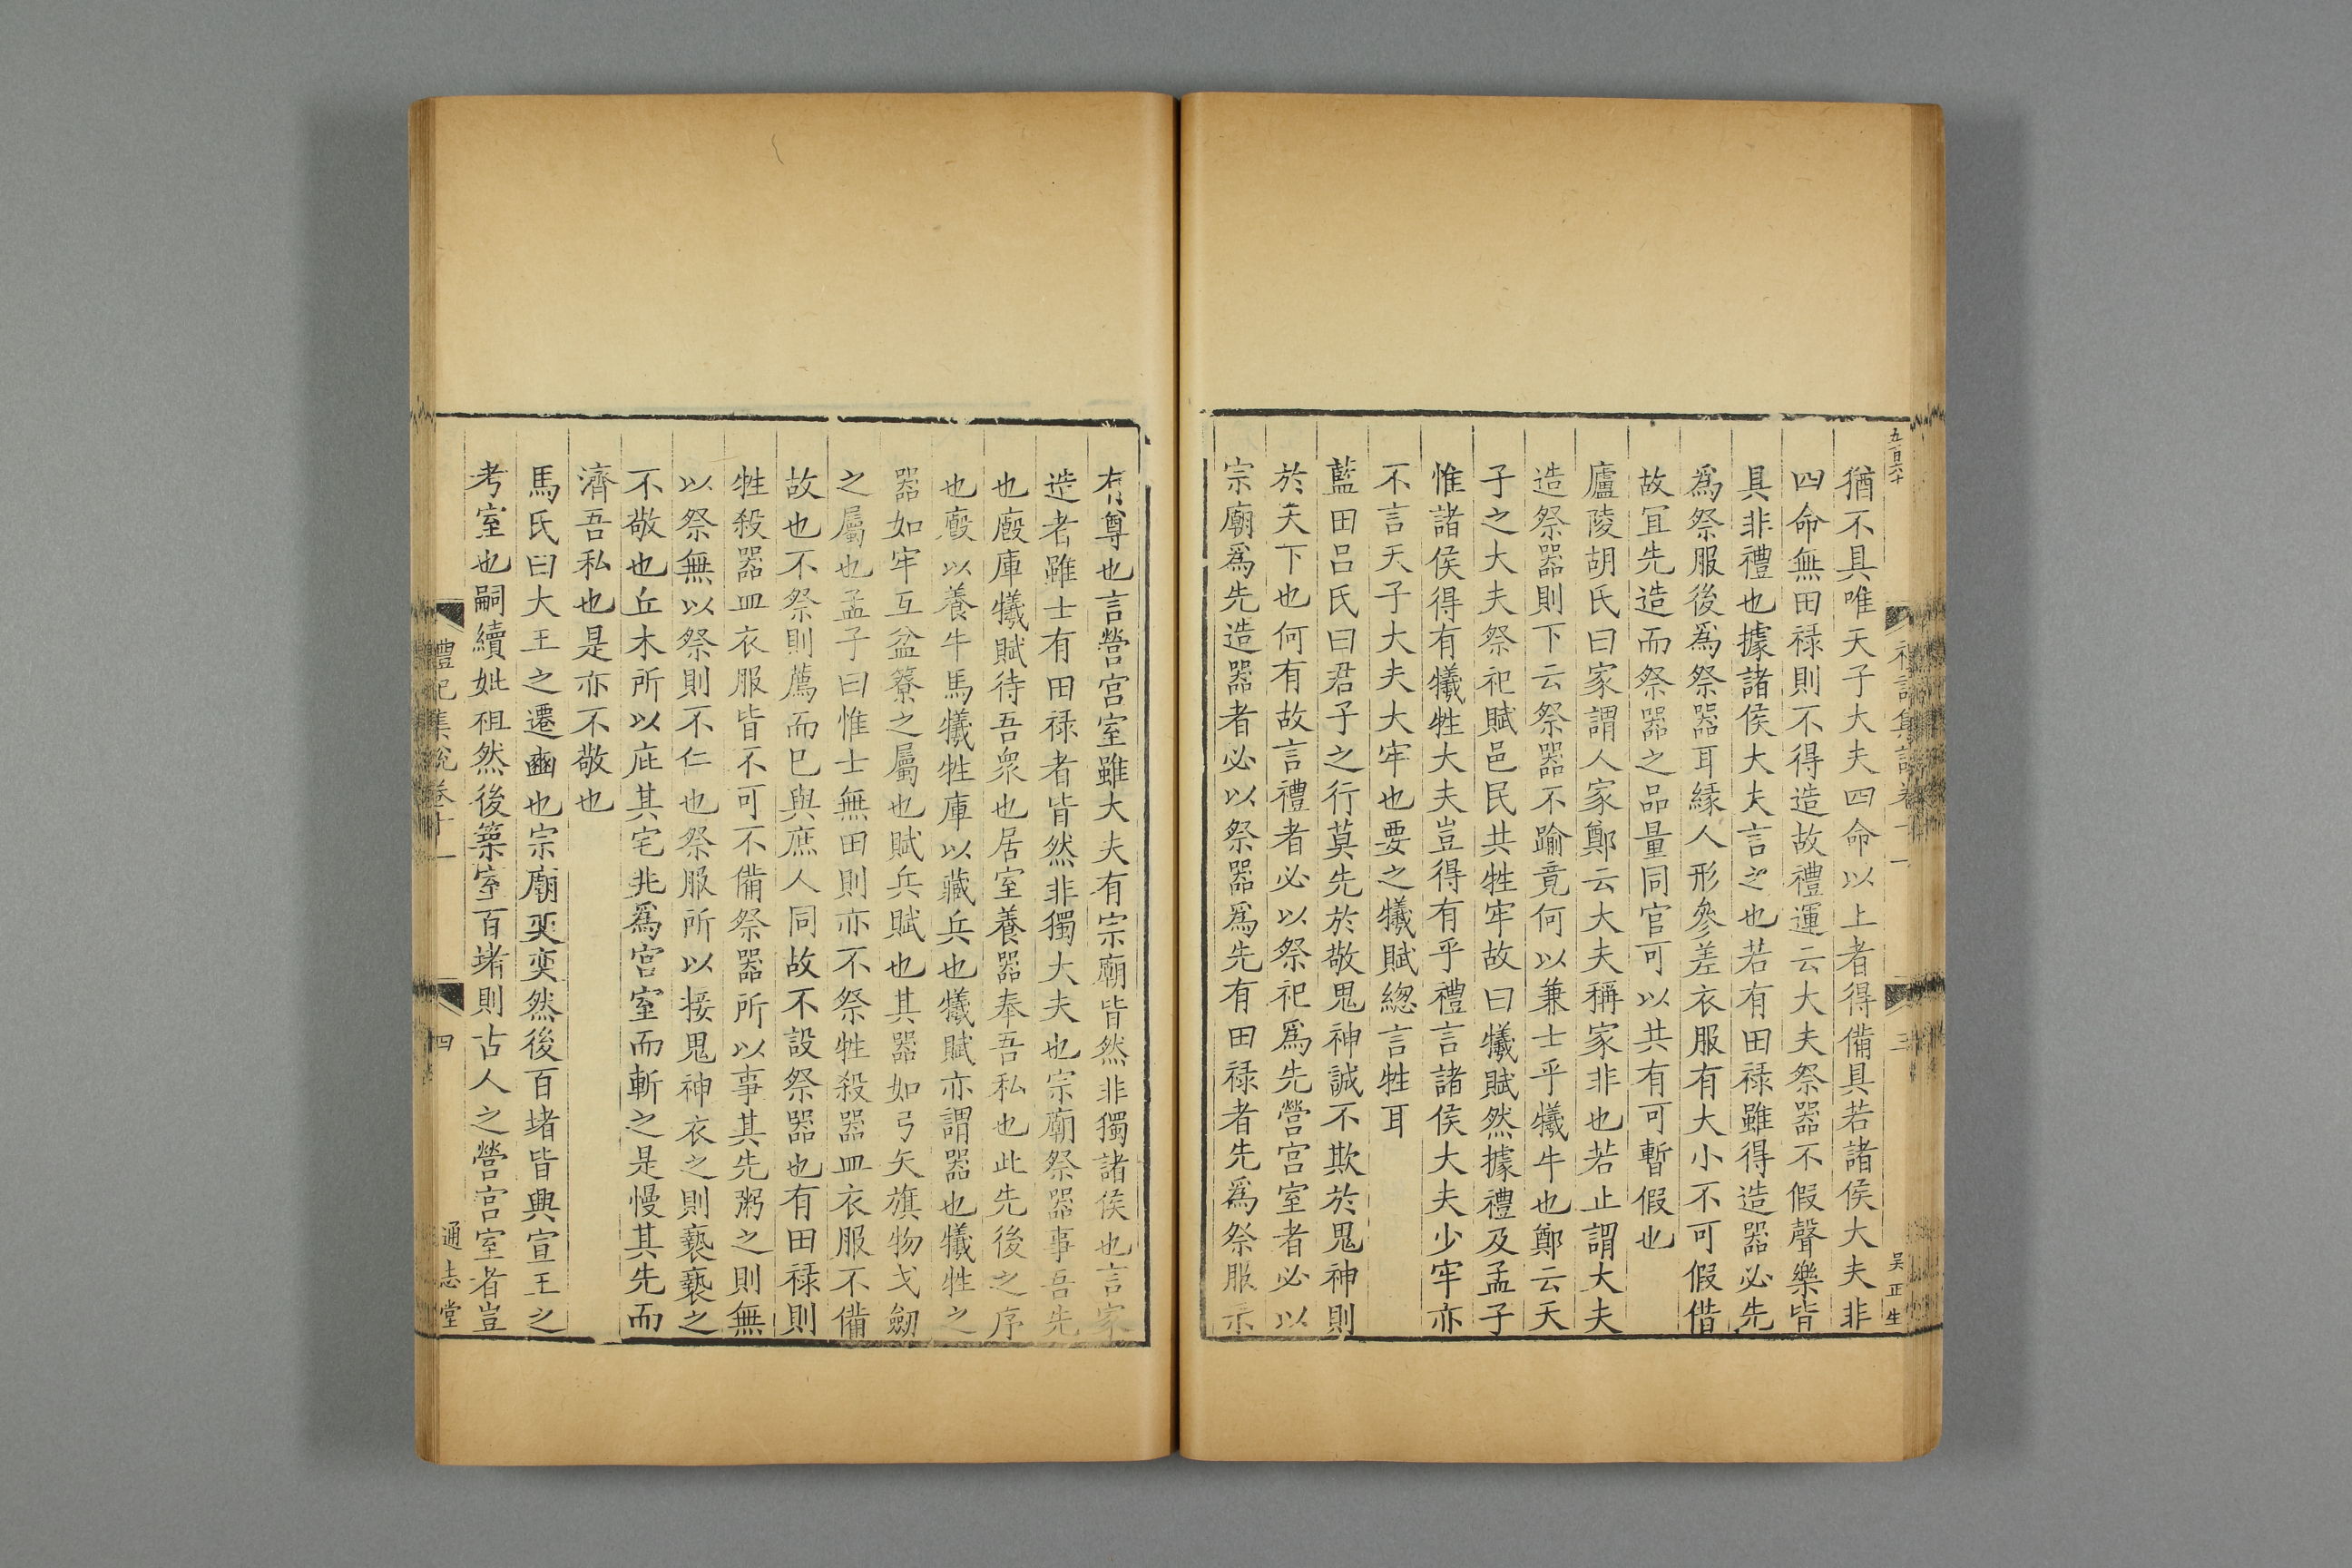 五百六十
猶不具唯天子大夫四命以上者得備具若諸侯大夫非
四命無田禄則不得造故禮運云大夫祭器不假聲樂皆
具非禮也據諸侯大夫言之也若有田禄雖得造器必先
爲祭服後爲祭器耳緣人形參差衣服有大小不可假借
故冝先造而祭器之品量同官可以共有可暫假也
廬陵胡氏曰家謂人家鄭云大夫稱家非也若止謂大夫
造祭器則下云祭器不踰竟何以兼士乎犧牛也鄭云天
子之大夫祭祀賦邑民共牲牢故曰犧賦然據禮及孟子
惟諸侯得有犧牲大夫豈得有乎禮言諸侯大夫少牢亦
不言天子大夫大牢也要之犧賦緫言牲耳
藍田呂氏曰君子之行莫先於敬鬼神誠不欺於鬼神則
於天下也何有故言禮者必以祭祀爲先營宫室者必以
宗廟爲先造器者必以祭器爲先有田禄者先爲祭服示
吴正生
三
有尊也言營宫室雖大夫有宗廟皆然非獨諸侯也言家
造者雖士有田禄者皆然非獨大夫也宗廟祭器事吾先
也廐庫犧賦待吾衆也居室養器奉吾私也此先後之序
也廐以養牛馬犧牲庫以藏兵也犧賦亦謂器也犧牲之
器如牢互盆簝之屬也賦兵賦也其器如弓矢旗物戈劒
之屬也孟子曰惟士無田則亦不祭牲殺器皿衣服不備
故也不祭則薦而已與庶人同故不設祭器也有田禄則
牲殺器皿衣服皆不可不備祭器所以事其先粥之則無
以祭無以祭則不仁也祭服所以接鬼神衣之則褻褻之
不敬也丘木所以庇其宅兆爲宫室而斬之是慢其先而
濟吾私也是亦不敬也
馬氏曰大王之遷豳也宗廟奕奕然後百堵皆興宣王之
考室也嗣續妣祖然後築室百堵則古人之營宫室者豈
禮記集說卷十一
四
通志堂